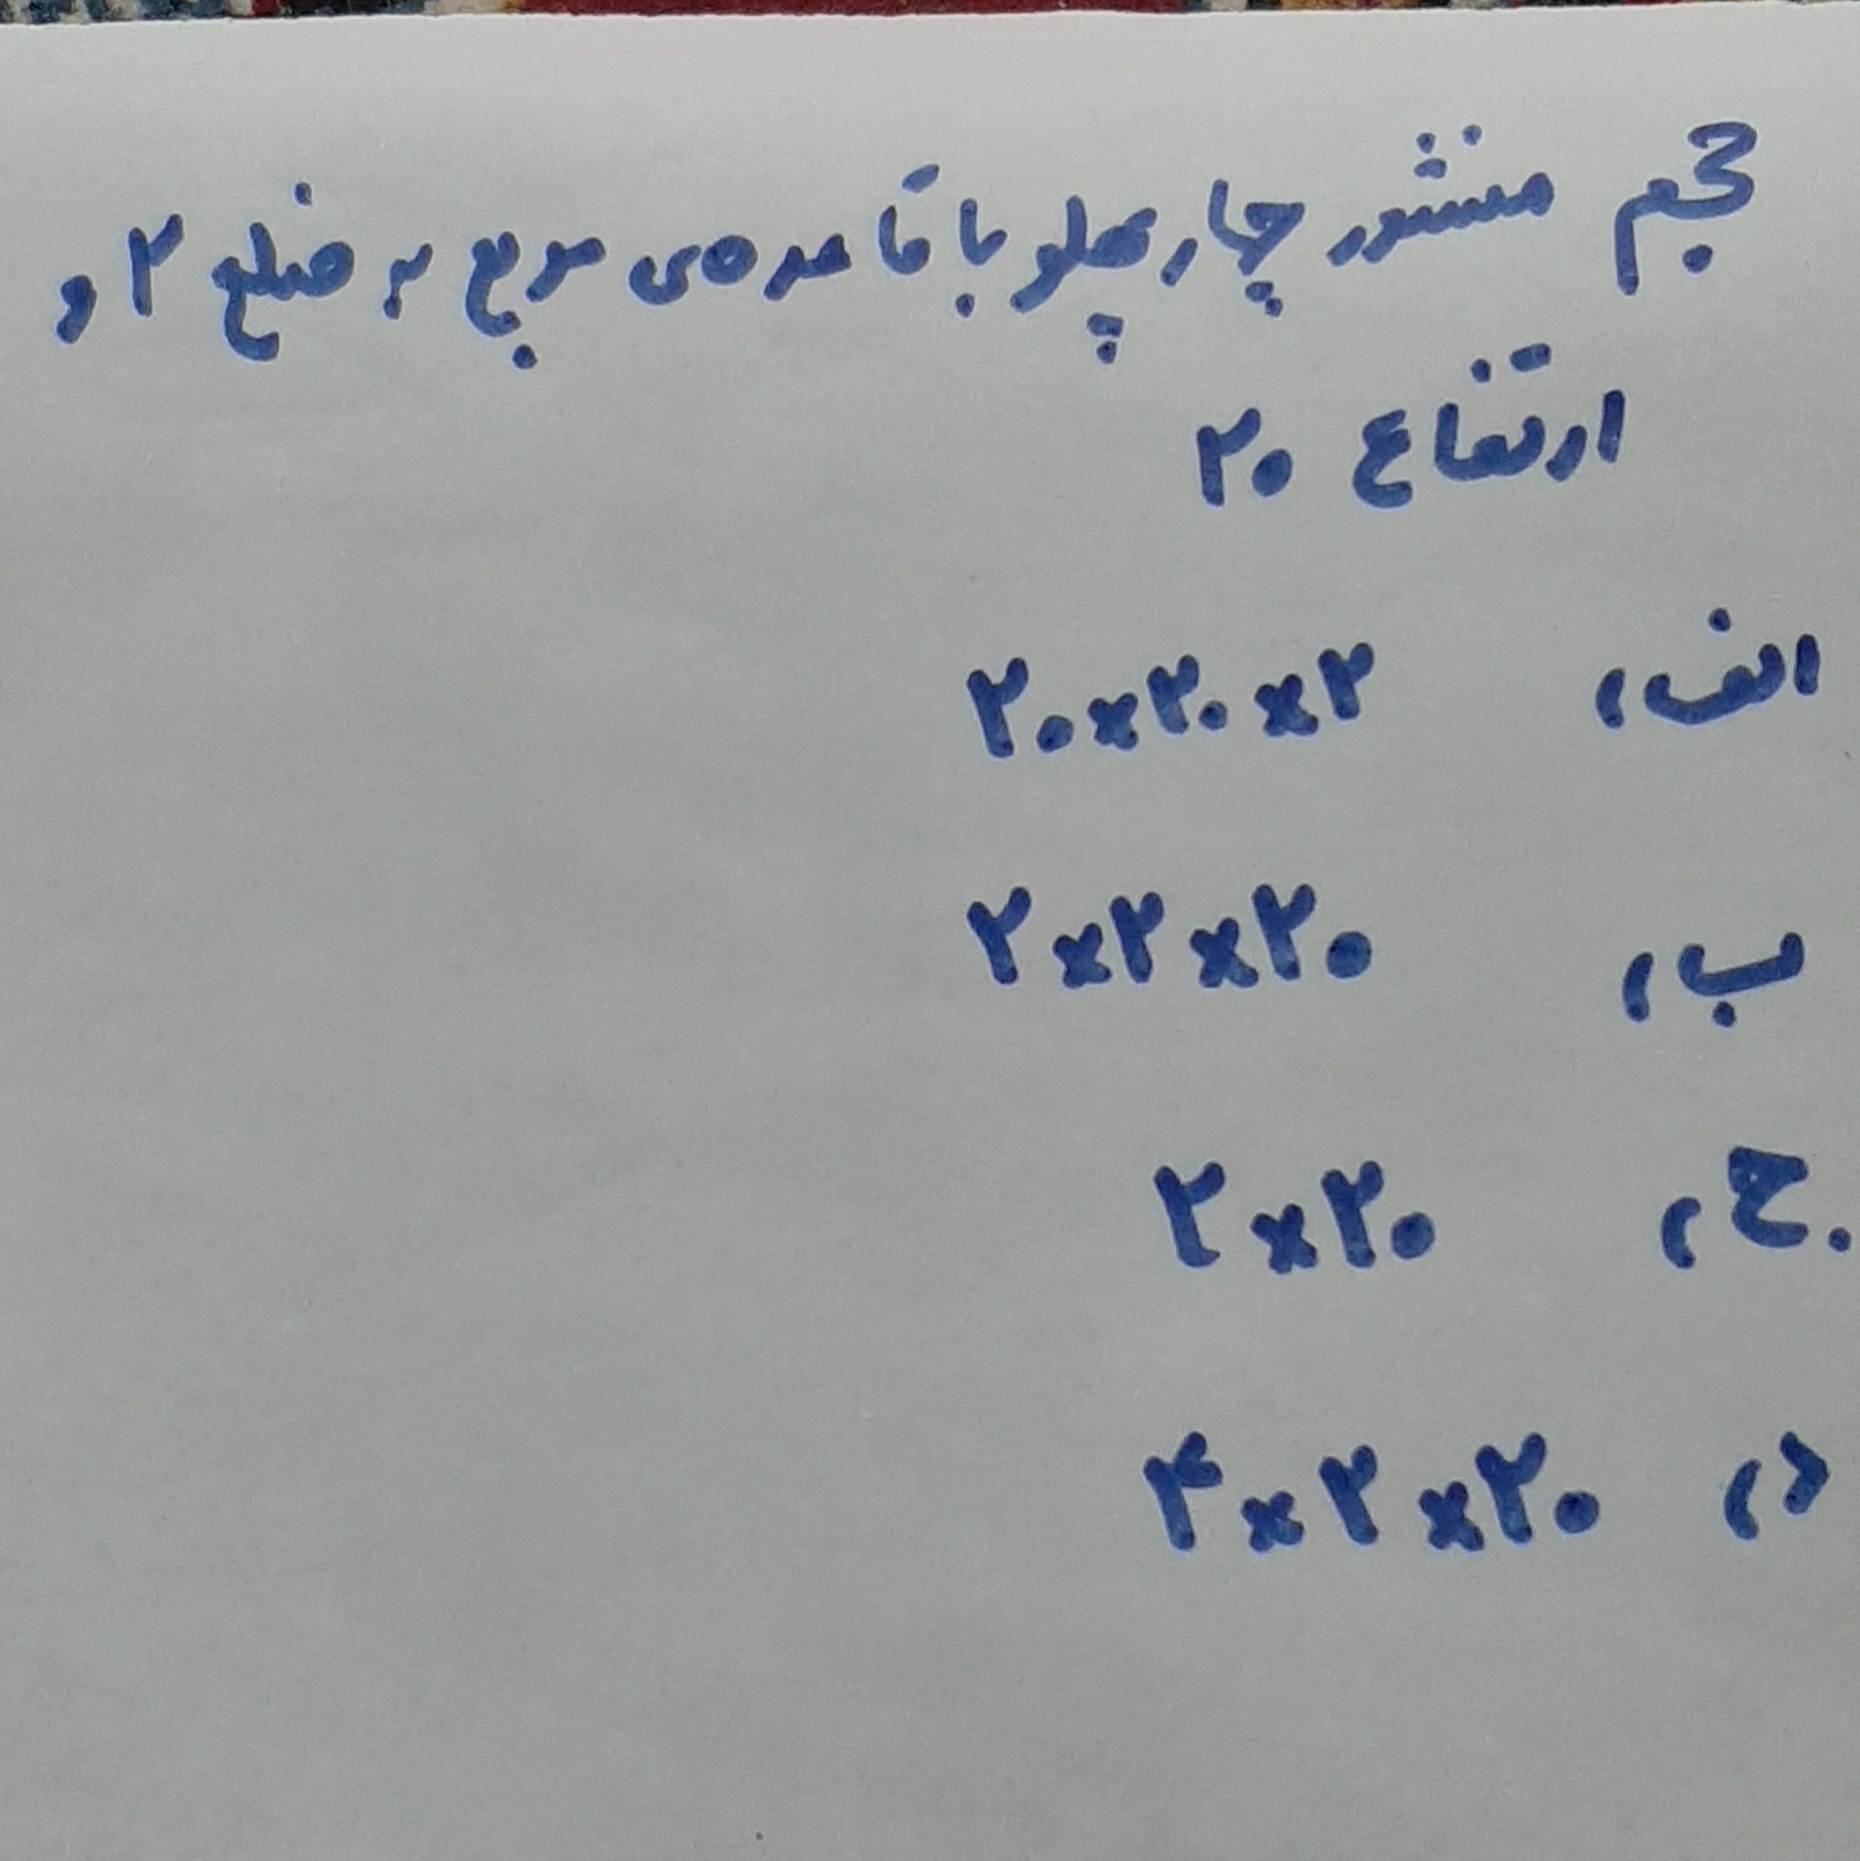 حجم منشور چهارپهلو با قاعده‌ی مربع به ضلع ۲ و
ارتفاع ۲۰
الف، ۲۰×۲۰×۲
ب، ۲×۲×۲۰
ج، ۲×۲۰
د، ۴×۲×۲۰